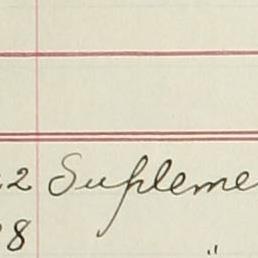 2 Supleme
8 "